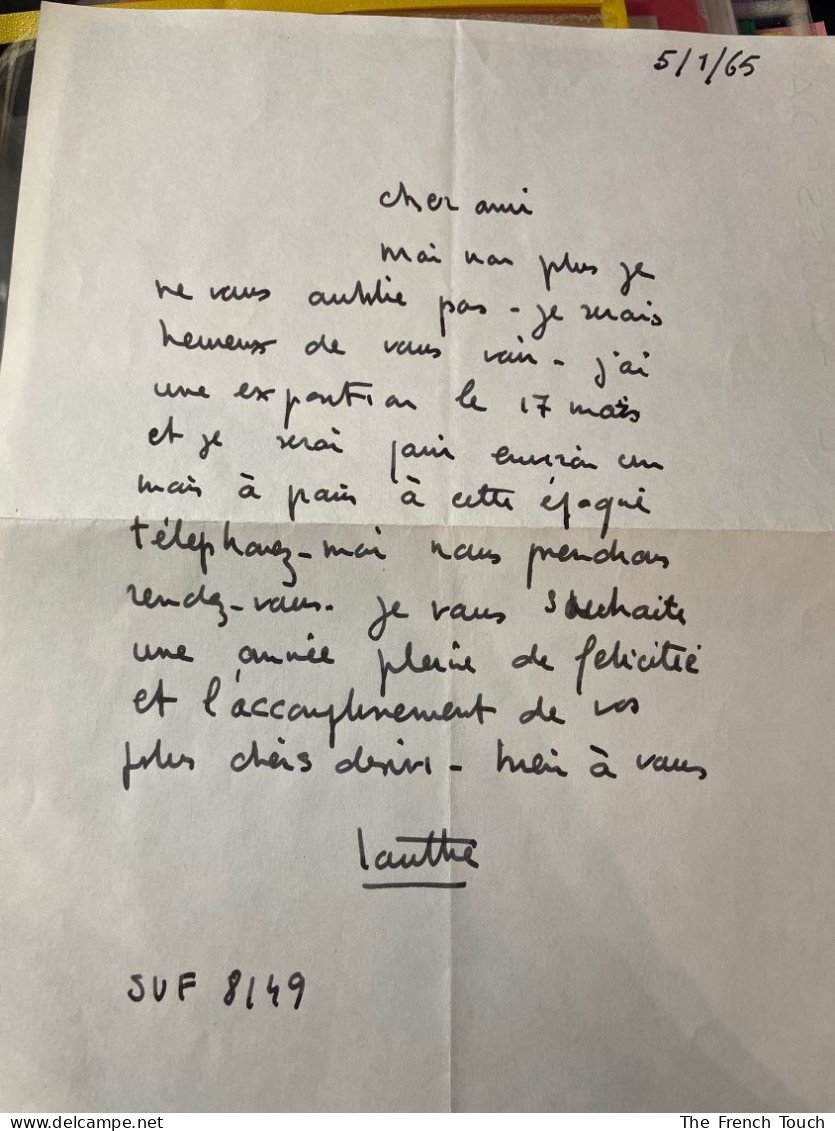 5/1/65
cher ami
moi non plus je
ne vous oublie pas - je serais
heureux de vous voir - j'ai
une exposition le 17 mars
et je serai pour environ un
mois à paris à cette époque
téléphonez-moi nous prendrons
rendez-vous. je vous souhaite
une année pleine de félicité
et l'accomplissement de vos
plus chers désirs - bien à vous
SUF 8149
www.delcampe.net
The French Touch